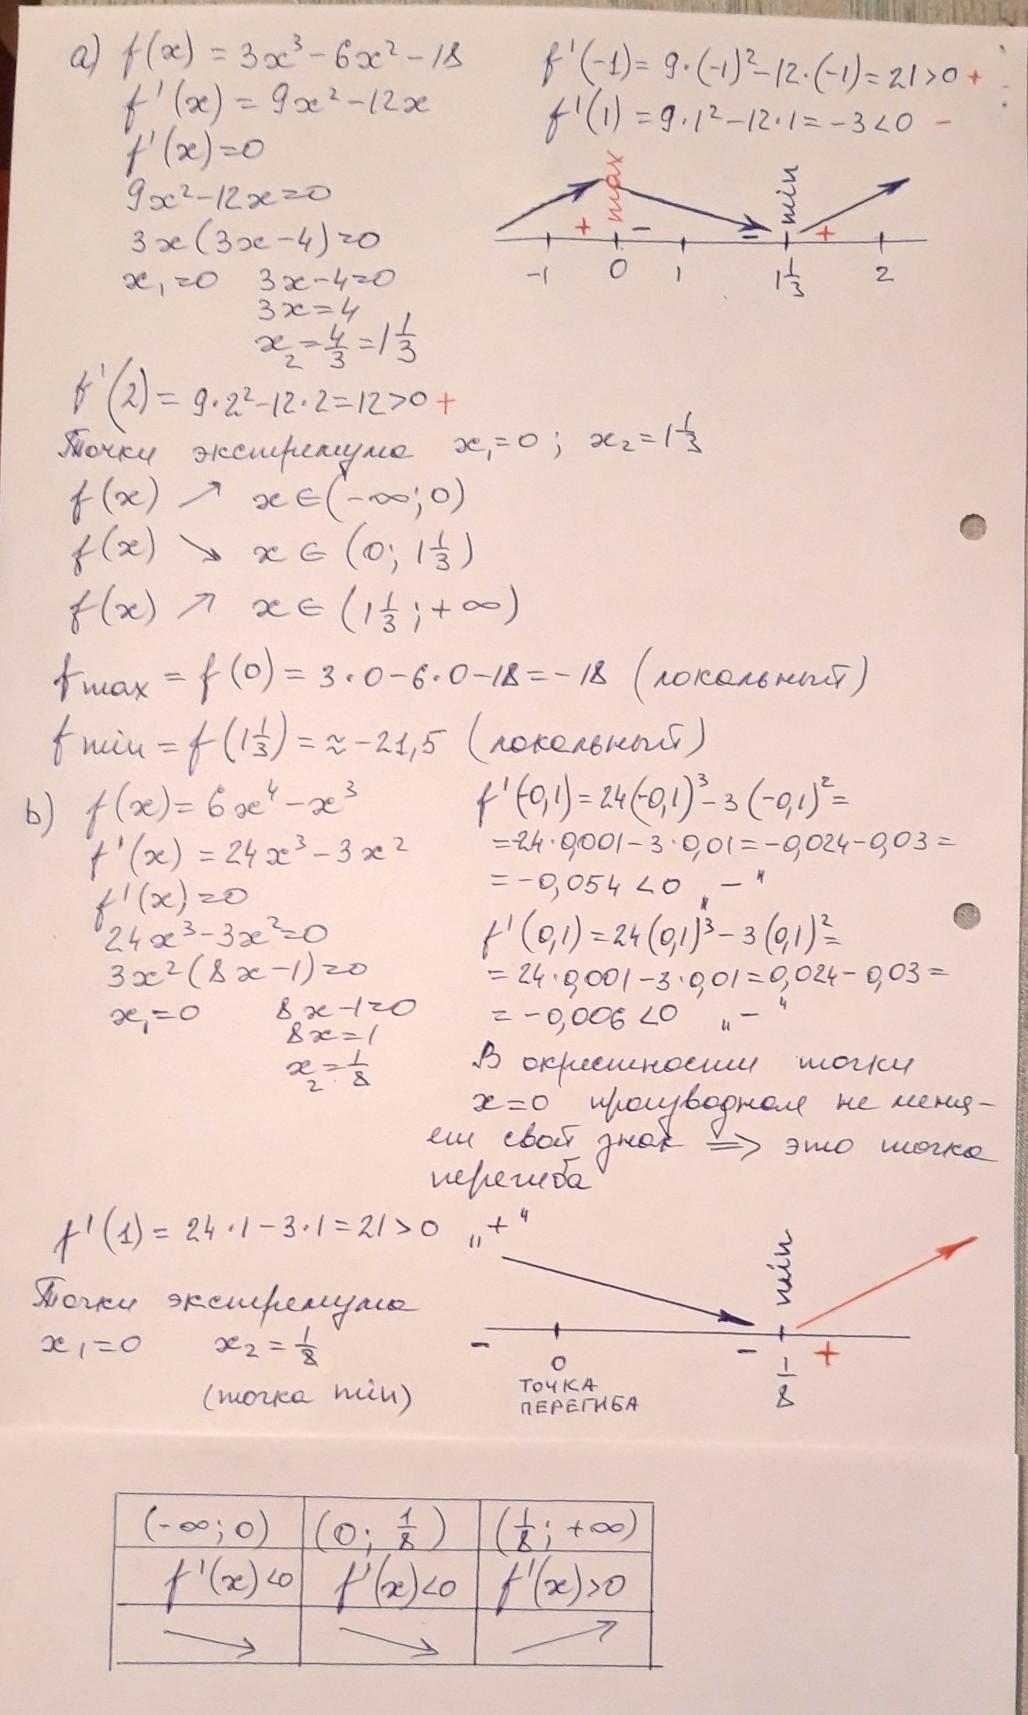 a) f(x) = 3x³ - 6x² - 18
f'(x) = 9x² - 12x
f'(x) = 0
9x² - 12x = 0
3x(3x - 4) = 0
x₁ = 0 3x - 4 = 0
3x = 4
x₂ = 4/3 = 1 1/3
f'(-1) = 9·(-1)² - 12·(-1) = 21 > 0 +
f'(1) = 9·1² - 12·1 = -3 < 0 -
max min
+ - - +
-1 0 1 1 1/3 2
f'(2) = 9·2² - 12·2 = 12 > 0 +
Точки экстремума x₁ = 0; x₂ = 1 1/3
f(x) ↗ x ∈ (-∞; 0)
f(x) ↘ x ∈ (0; 1 1/3)
f(x) ↗ x ∈ (1 1/3; +∞)
f max = f(0) = 3·0 - 6·0 - 18 = -18 (локальный)
f min = f(1 1/3) = ≈ -21,5 (локальный)
b) f(x) = 6x⁴ - x³
f'(x) = 24x³ - 3x²
f'(x) = 0
24x³ - 3x² = 0
3x²(8x - 1) = 0
x₁ = 0 8x - 1 = 0
8x = 1
x₂ = 1/8
f'(-0,1) = 24(-0,1)³ - 3(-0,1)² =
= -24·0,001 - 3·0,01 = -0,024 - 0,03 =
= -0,054 < 0 „-"
f'(0,1) = 24(0,1)³ - 3(0,1)² =
= 24·0,001 - 3·0,01 = 0,024 - 0,03 =
= -0,006 < 0 „-"
В окрестности точки
x = 0 производная не меня-
ет свой знак ⟹ это точка
перегиба
f'(1) = 24·1 - 3·1 = 21 > 0 „+"
Точки экстремума
x₁ = 0 x₂ = 1/8
(точка min)
min
- - +
0 1/8
ТОЧКА
ПЕРЕГИБА
(-∞; 0) (0; 1/8) (1/8; +∞)
f'(x) < 0 f'(x) < 0 f'(x) > 0
↘ ↘ ↗